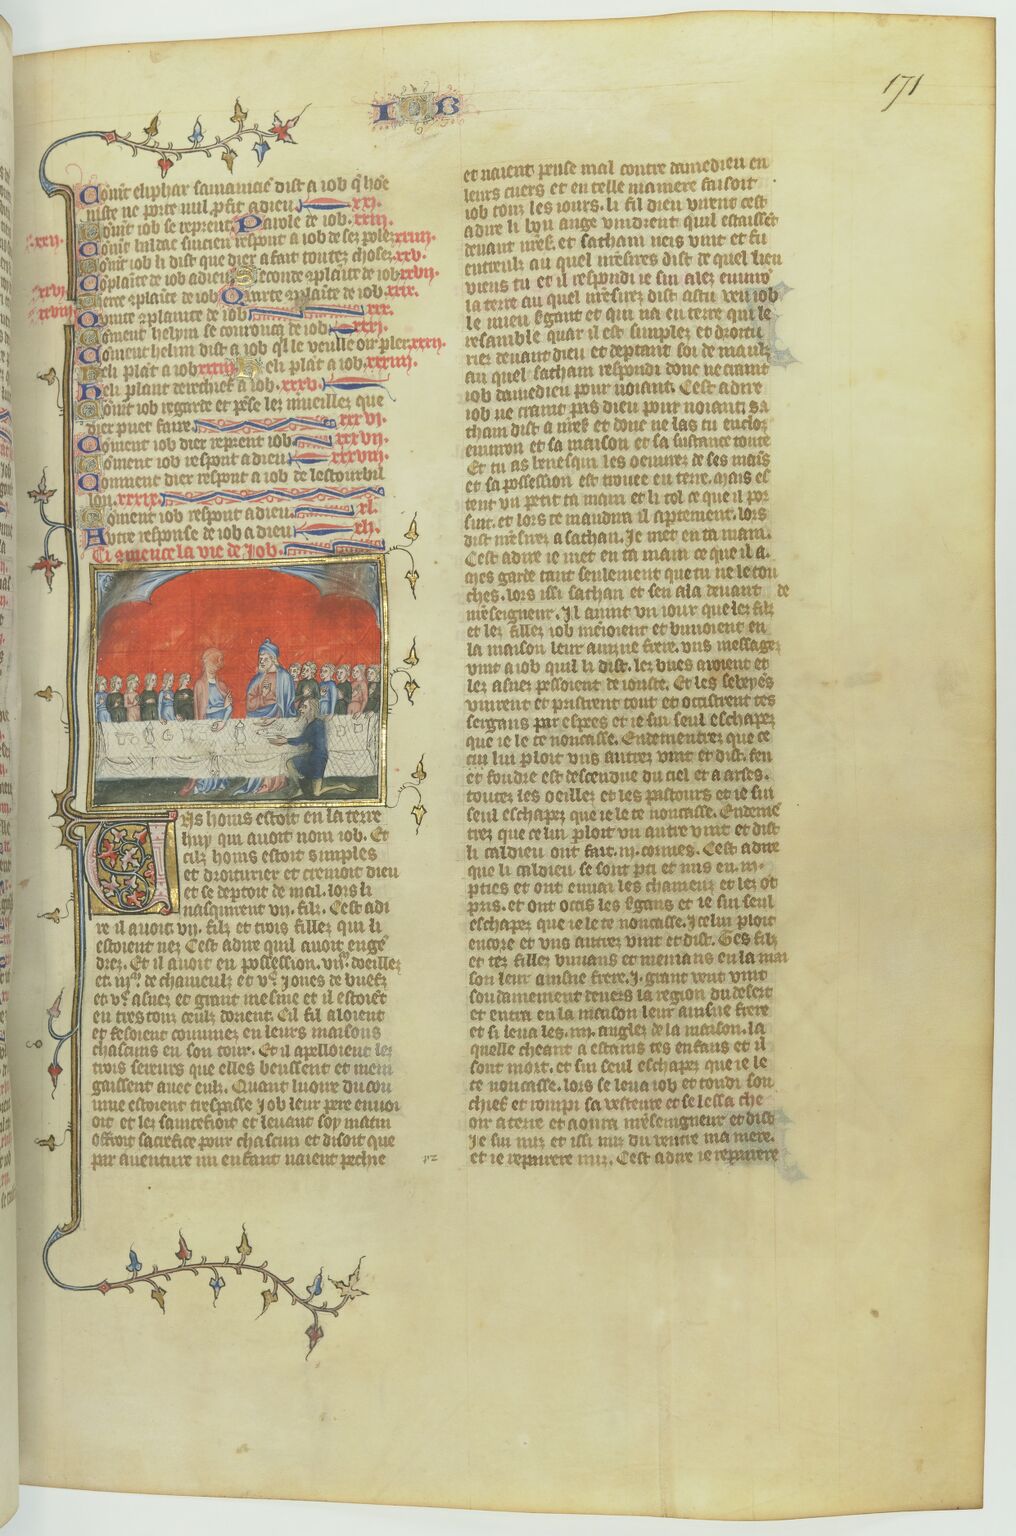 IOB
171
Com̄t eliphar samanicies dist a iob q̄ hōe
niste ne porte nul ꝓfit a dieu xxi.
xxii. Com̄t iob se reprent Parole de iob. xxiii.
Com̄t baldac sucien respont a iob de ses polez xxiiii.
Com̄t iob li dist que dieu a fait toutez chosez. xxv.
xxvi. Cōplaīte de iob a dieu Seconde ꝯplaīte de iob xxvii.
xxviii. Tierce ꝯplaīte de iob Quarte ꝯplaīte de iob. xxix.
Quinte ꝯplainte de iob xxx.
Coment helyin se courouca de iob xxxi.
Coment helini dist a iob q̄l le veulle oir pler. xxxii.
Heli plaīt a iob xxxiii. Heli plaīt a iob. xxxiiii.
Heli plaint derechief a iob. xxxv.
Com̄t iob regarde et pēse les mueillez que
dier puet faire. xxxvi.
Coment iob dier reprent iob. xxxvii.
Coment iob respont a dieu xxxviii.
Comment dier respont a iob de lestourbil
lon. xxxix.
Coment iob respont a dieu. xl.
Autre response de iob a dieu xli.
Ci ꝯmence la vie de Job.
Uns homs estoit en la terre
huy qui auoit nom iob. Et
cilz homs estoit simples
et droiturier et cremoit dieu
et se deptoit de mal. lors li
nasquirent vij. filz. Cest adi
re il auoit vij. filz et trois fillez qui li
estoient nez Cest adire quil auoit enge
drez. Et il auoit en possession. vijᵐ. doeillez
et. iijᵐ. de chameulz et vᶜ Jouȩs de buefz
et vᶜ asnez et grant mesnie et il estoiēt
en tres tou ceulz dorient. Cil fil aloient
et fesoient conuinez en leurs maisons
chascuns en son tour. Et il apelloient lez
trois sereurs que elles beussent et mein
gaissent auec eulz. Quant li iour du con
uiue estoient trespasse Job leur pere enuoi
oit et les saintefioit et leuant soy matin
offroit sacrefice pour chascun et disoit que
par auenture mi enfant naient pechie
et naient pense mal contre damedieu en
leurs cuers et en celle maniere faisoit
iob touz les iours. li fil dieu vinrent cest
adire li bon ange vindrent quil estaissēt
deuant nr̄es. et sathan neis vint et fu
entreulz au quel mesires dist de quel lieu
viens tu et il respondi ie sui alez enuirō
la terre au quel mēsires dist as tu veu iob
le mien sgant et qui na en terre qui le
resamble quar il est simplez et droitu
riez deuant dieu et deptant soi de maulz
au quel sathan respondi donc ne craint
iob damedieu pour noiant. Cest adire
iob ne craint pas dieu pour noiant; sa
than dist a nr̄es et donc ne las tu enclos
enuiron et sa maison et sa sustance toute
Et tu as beneisqui les oeuurez de ses mais
et sa possession est creue en terre. Mais es
tent vn petit ta main et li tol ce que il pos
siue. et lors te maudira il aptement. lors
dist mesirez a sathan. Je met en ta main.
Cest adire ie met en ta main ce que il a.
Mes garde tant seulement que tu ne le tou
ches. lors issi sathan et sen ala deuant de
mēseigneur. Il auint vn iour que lez filz
et les fillez iob mēioient et buuoient en
la maison leur ainzne frere. vns messagez
vint a iob quil li dist. lez bues aroient et
lez asnez pessoient de iouste. Et les sebeyēs
vinrent et pristrent tout et occistrent tes
sergans par espees et ie sui seul eschapez
que ie le te noncasse. Endementrez que ce
tui lui ploit vns autrez vint et dist. feu
et foudre est descendue du ciel et a arses.
toutez les oeillez et les pastours et ie sui
seul eschapez que ie le te noncasse. Endeme
trez que ce lui ploit vn autre vint et dist
li caldieu ont fait. iij. cornues. Cest adire
que li caldieu se sont pti et mis en. iij.
pties et ont enuai les chameux et lez ot
pris. et ont occis les sgans et ie sui seul
eschapez que ie le te noncasse. Icelui ploit
encore et vns autrez vint et dist. Ces filz
et tez fillez vuuans et meniaus en la mai
son leur ainsne frere. J. grant vent vint
soudainement deuers la region du desert
et entra en la maison leur ainsne frere
et si leua les. iiij. anglez de la maison. la
quelle cheant a estains tes enfans et il
sont mort. et sui seul eschapez que ie le
te noncasse. lors se leua iob et tondi son
chief et rompi sa vesteure et se lessa che
oir a terre et aoura mēseingneur et dist
Je sui nuz et issi nuz du ventre ma mere.
et ie repairere nuz. Cest adire ie repairere